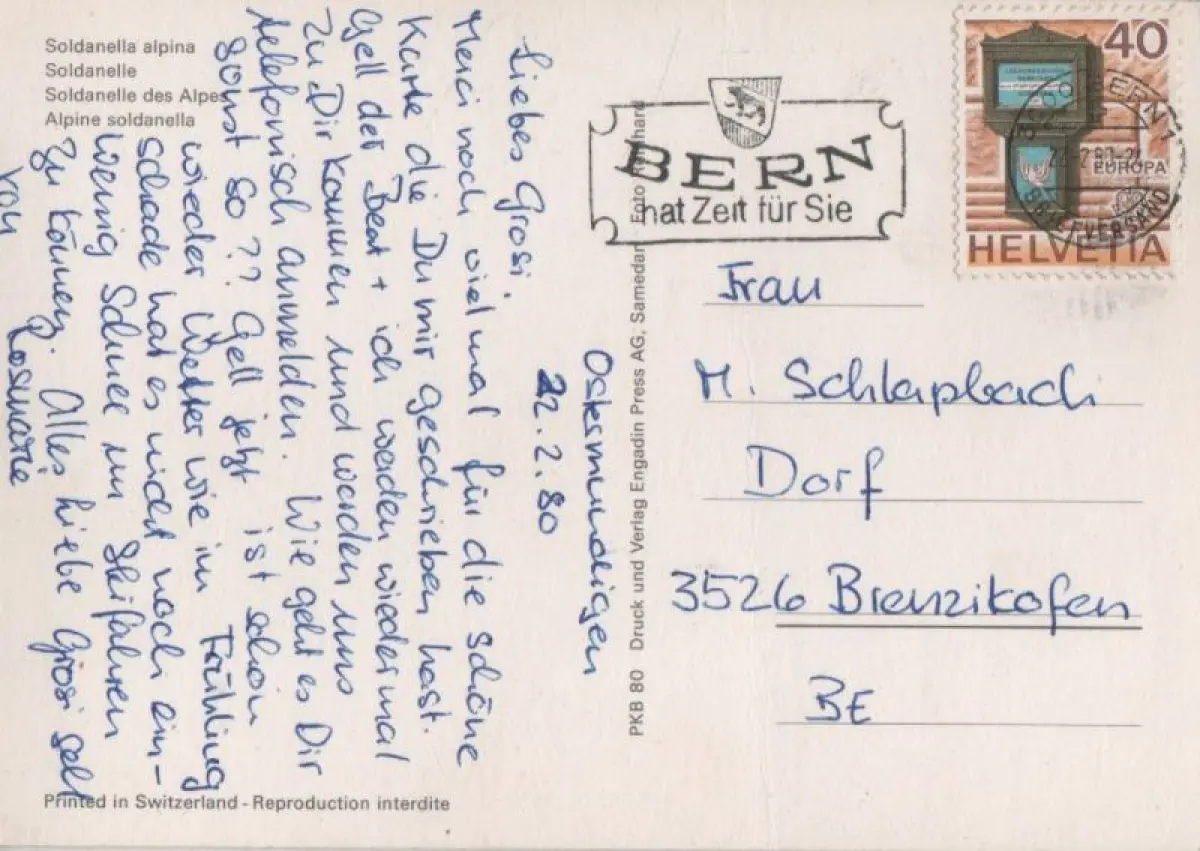 Soldanella alpina
Soldanelle
Soldanelle des Alpes
Alpine soldanella
Ostermundigen
22.2.80
Liebes Grosi,
Merci noch vielmal für die schöne
Karte die Du mir geschrieben hast.
Gell der Beat + ich werden wiedermal
zu Dir kommen und werden uns
telefonisch anmelden. Wie geht es Dir
sonst so?? Gell jetzt ist schon
wieder Wetter wie im Frühling
schade hat es nicht noch ein-
wenig Schnee um Skifahren
zu können. Alles liebe Grosi
von
Rosmarie
Printed in Switzerland - Reproduction interdite
PKB 80 Druck und Verlag Engadin Press AG, Samedan - Foto
BERN
hat Zeit für Sie
40
EUROPA
HELVETIA
BERN 1
BRIEFVERSAND
Frau
M. Schlapbach
Dorf
3526 Brenzikofen
BE